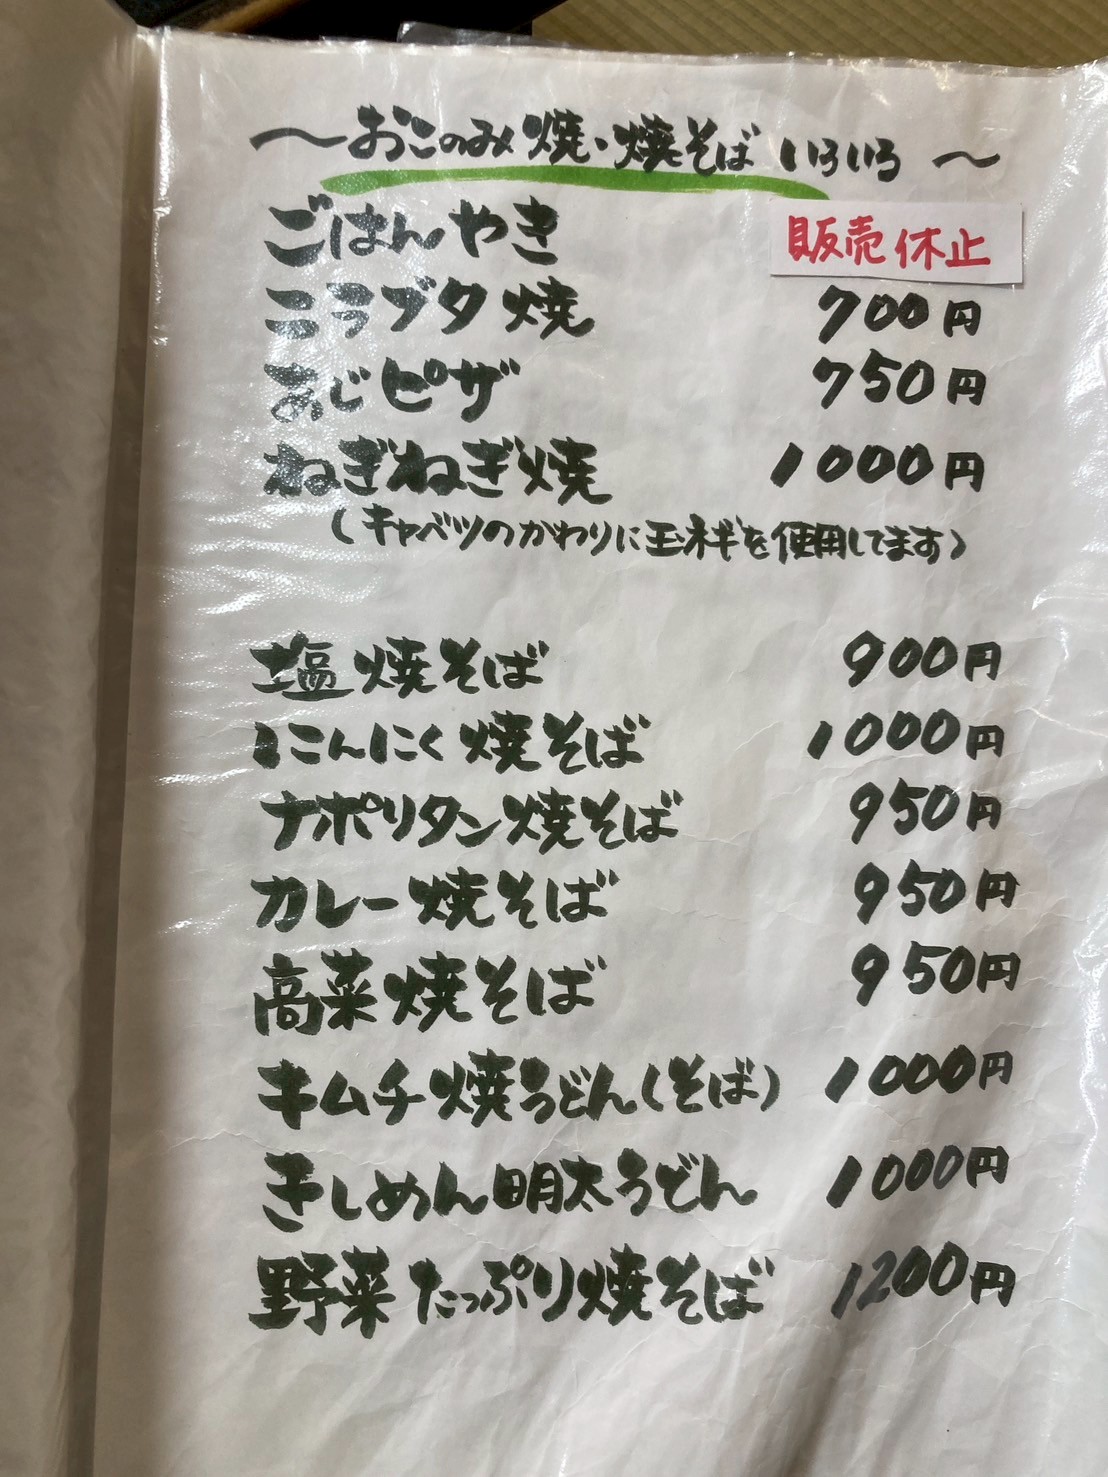 ～おこのみ焼・焼そば いろいろ～
ごはんやき 販売休止
こうブタ焼 700円
あじピザ 750円
ねぎねぎ焼 1000円
(キャベツのかわりに玉ネギを使用してます)
塩焼そば 900円
にんにく焼そば 1000円
ナポリタン焼そば 950円
カレー焼そば 950円
高菜焼そば 950円
キムチ焼うどん(そば) 1000円
きしめん明太うどん 1000円
野菜たっぷり焼そば 1200円